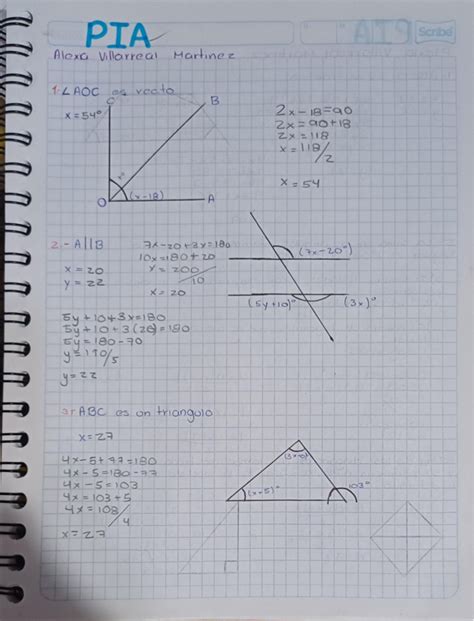 PIA
Scribe
Alexa Villarreal Martinez
1. ∠AOC es recto
C
B
x=54°
x°
(x-18)
O
A
2x-18=90
2x=90+18
2x=118
x=118/2
x=54
2- A||B
7x-20+3x=180
10x=180+20
x=200/10
x=20
x=20
y=22
(7x-20°)
(5y+10)°
(3x)°
5y+10+3x=180
5y+10+3(20)=180
5y=180-70
y=110/5
y=22
3. ABC es un triangulo
x=27
4x-5+77=180
4x-5=180-77
4x-5=103
4x=103+5
4x=108/4
x=27
(x+5)°
103°